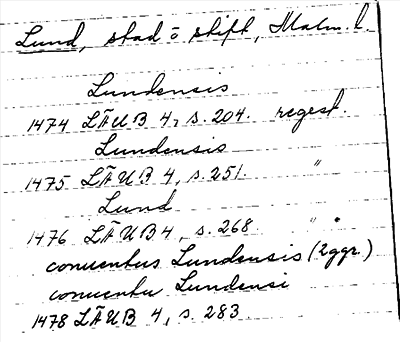 Lund, stad o stift, Malm. l.
Lundensis
1474 LÄUB 4, s. 204. regest.
Lundensis
1475 LÄUB 4, s. 251. "
Lund
1476 LÄUB 4, s. 268. "
conuentus Lundensis (2ggr.)
conuentu Lundensi
1478 LÄUB 4, s. 283.